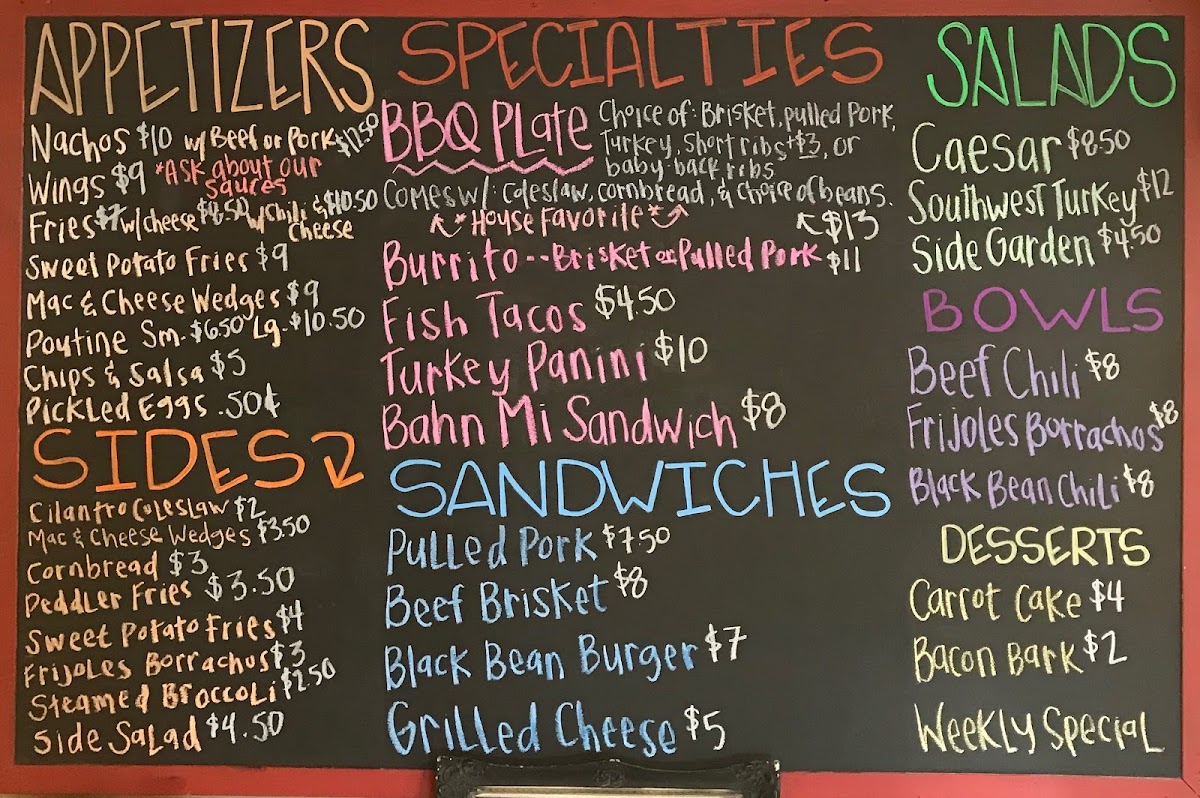 APPETIZERS
Nachos $10 w/ Beef or Pork $12.50
Wings $9 *Ask about our
sauces
Fries $7 w/ cheese $8.50 w/ Chili & $10.50
cheese
Sweet Potato Fries $9
Mac & Cheese Wedges $9
Poutine Sm. $6.50 Lg. $10.50
Chips & Salsa $5
Pickled Eggs .50¢
SIDES
Cilantro Coleslaw $2
Mac & Cheese Wedges $3.50
Cornbread $3
Peddler Fries $3.50
Sweet Potato Fries $4
Frijoles Borrachos $3
Steamed Broccoli $2.50
Side Salad $4.50
SPECIALTIES
BBQ Plate
Choice of: Brisket, pulled Pork,
Turkey, Short ribs +$3, or
baby-back ribs
Comes w/: coleslaw, cornbread, & choice of beans.
*House Favorite* $13
Burrito -- Brisket or Pulled Pork $11
Fish Tacos $4.50
Turkey Panini $10
Bahn Mi Sandwich $8
SANDWICHES
Pulled Pork $7.50
Beef Brisket $8
Black Bean Burger $7
Grilled Cheese $5
SALADS
Caesar $8.50
Southwest Turkey $12
Side Garden $4.50
BOWLS
Beef Chili $8
Frijoles Borrachos $8
Black Bean Chili $8
DESSERTS
Carrot Cake $4
Bacon Bark $2
Weekly Special